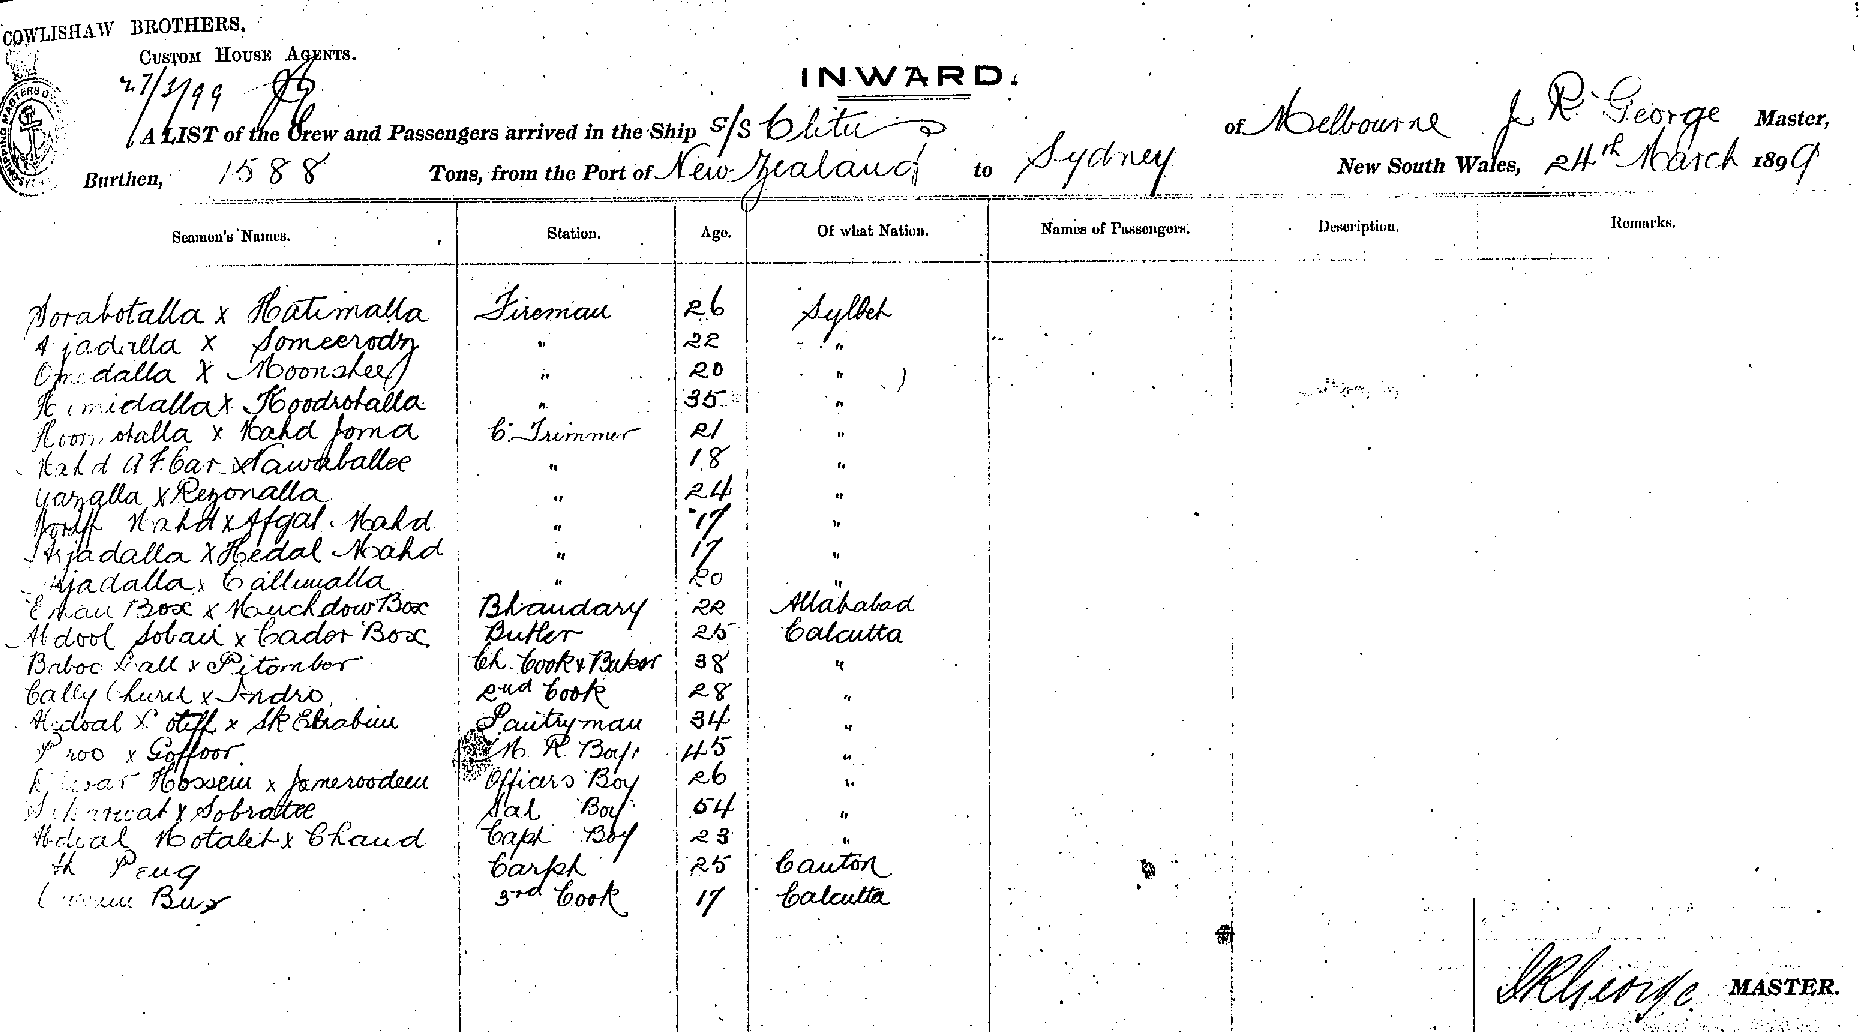 COWLISHAW BROTHERS.
CUSTOM HOUSE AGENTS.
27/3/99
INWARD.
A LIST of the Crew and Passengers arrived in the Ship s/s Clitus of Melbourne J R George Master,
Burthen, 1588 Tons, from the Port of New Zealand to Sydney New South Wales, 24th March 1899
Seamen's Names. Station. Age. Of what Nation. Names of Passengers. Description. Remarks.
Sorabotalla x Hatimalla Fireman 26 Sylhet
Ajadulla x Someerodin " 22 "
Omedalla x Moonshee " 20 "
Hamidalla x Koodrotalla " 35 "
x Mahd Joma C. Trimmer 21 "
Mahd x Nawaballee " 18 "
x Rezonalla " 24 "
Mahd x Afzal Mahd " 17 "
Arjadalla x Hedal Mahd " 17 "
x Callimalla " 20 "
Eman Box x Muchdow Box Bhandary 22 Allahabad
Abdool Soban x Cader Box Butler 25 Calcutta
Baboo Lall x Pitomber Ch. Cook & Baker 38 "
Cally Churn x Indro 2nd Cook 28 "
Abdoal Lotiff x Sk Ebrahim Pantryman 34 "
x Goffoor M. R. Boy 45 "
Hossein x Jameroodeen Officers Boy 26 "
x Sobratee Sal Boy 54 "
Abdoal Motaleb x Chand Capt Boy 23 "
Ah Peng Carptr 25 Canton
Bux 3rd Cook 17 Calcutta
J R George MASTER.